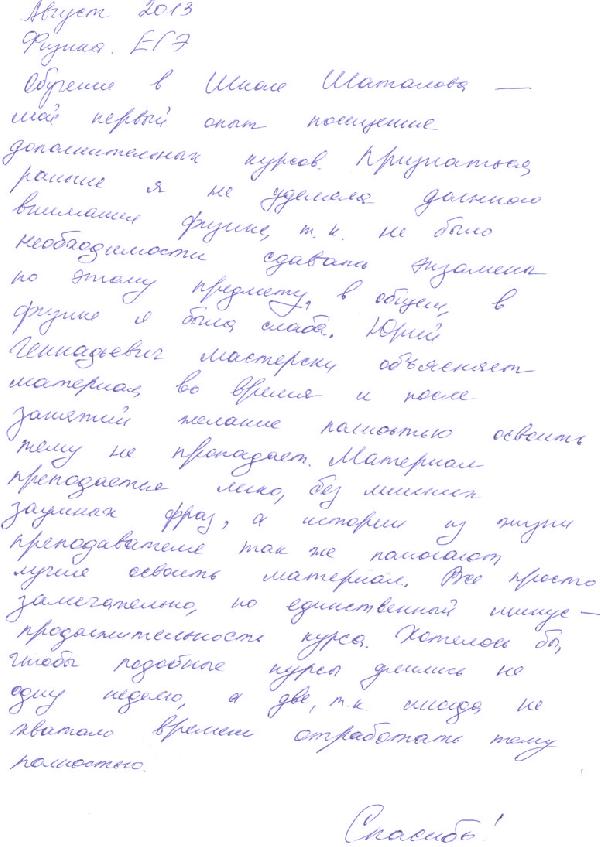 Август 2013
Физика. ЕГЭ
Обучение в Школе Шаталова —
мой первый опыт посещение
дополнительных курсов. Признаться,
раньше я не уделяла должного
внимания физике, т.к. не было
необходимости сдавать экзамены
по этому предмету, в общем, в
физике я была слаба. Юрий
Геннадьевич мастерски объясняет
материал, во время и после
занятий желание полностью освоить
тему не пропадает. Материал
преподается легко, без лишних
заумных фраз, а истории из жизни
преподавателя так же помогают
лучше освоить материал. Все просто
замечательно, но единственный минус —
продолжительность курса. Хотелось бы,
чтобы подобные курсы длились не
одну неделю, а две, т.к. иногда не
хватало времени отработать тему
полностью.
Спасибо!